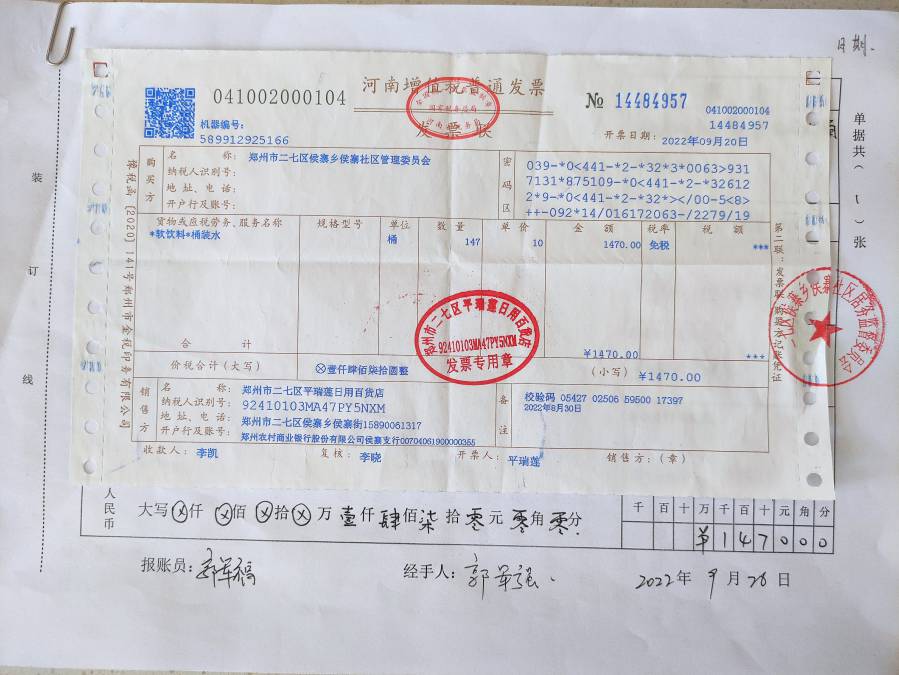 日期.
单据共(1)张
装
订
线
041002000104
河南增值税普通发票
发票联
№ 14484957
041002000104
14484957
机器编号:
589912925166
开票日期: 2022年09月20日
豫税函〔2020〕141号郑州市金税印务有限公司
购买方
名 称: 郑州市二七区侯寨乡侯寨社区管理委员会
纳税人识别号:
地 址、电 话:
开户行及账号:
密码区
039-*0<441-*2-*32*3*0063>931
7131*875109-*0<441-*2-*32612
2*9-*0<441-*2-*32*></00-5<8>
++-092*14/016172063-/2279/19
货物或应税劳务、服务名称 规格型号 单位 数 量 单 价 金 额 税率 税 额
*软饮料*桶装水 桶 147 10 1470.00 免税 ***
合 计 ¥1470.00 ***
价税合计(大写) ⊗壹仟肆佰柒拾圆整 (小写) ¥1470.00
郑州市二七区平瑞莲日用百货店
92410103MA47PY5NXM
发票专用章
销售方
名 称: 郑州市二七区平瑞莲日用百货店
纳税人识别号: 92410103MA47PY5NXM
地 址、电 话: 郑州市二七区侯寨乡侯寨街15890061317
开户行及账号: 郑州农村商业银行股份有限公司侯寨支行00704061900000355
备注
校验码 05427 02506 59500 17397
2022年8月30日
收款人: 李凯 复核: 李晓 开票人: 平瑞莲 销售方:(章)
第二联:发票联 购买方记账凭证
人民币
大写ⓧ仟ⓧ佰ⓧ拾ⓧ万壹仟肆佰柒拾零元零角零分.
千 百 十 万 千 百 十 元 角 分
¥ 1 4 7 0 0 0
报账员: 郭军福 经手人: 郭军强. 2022年9月26日